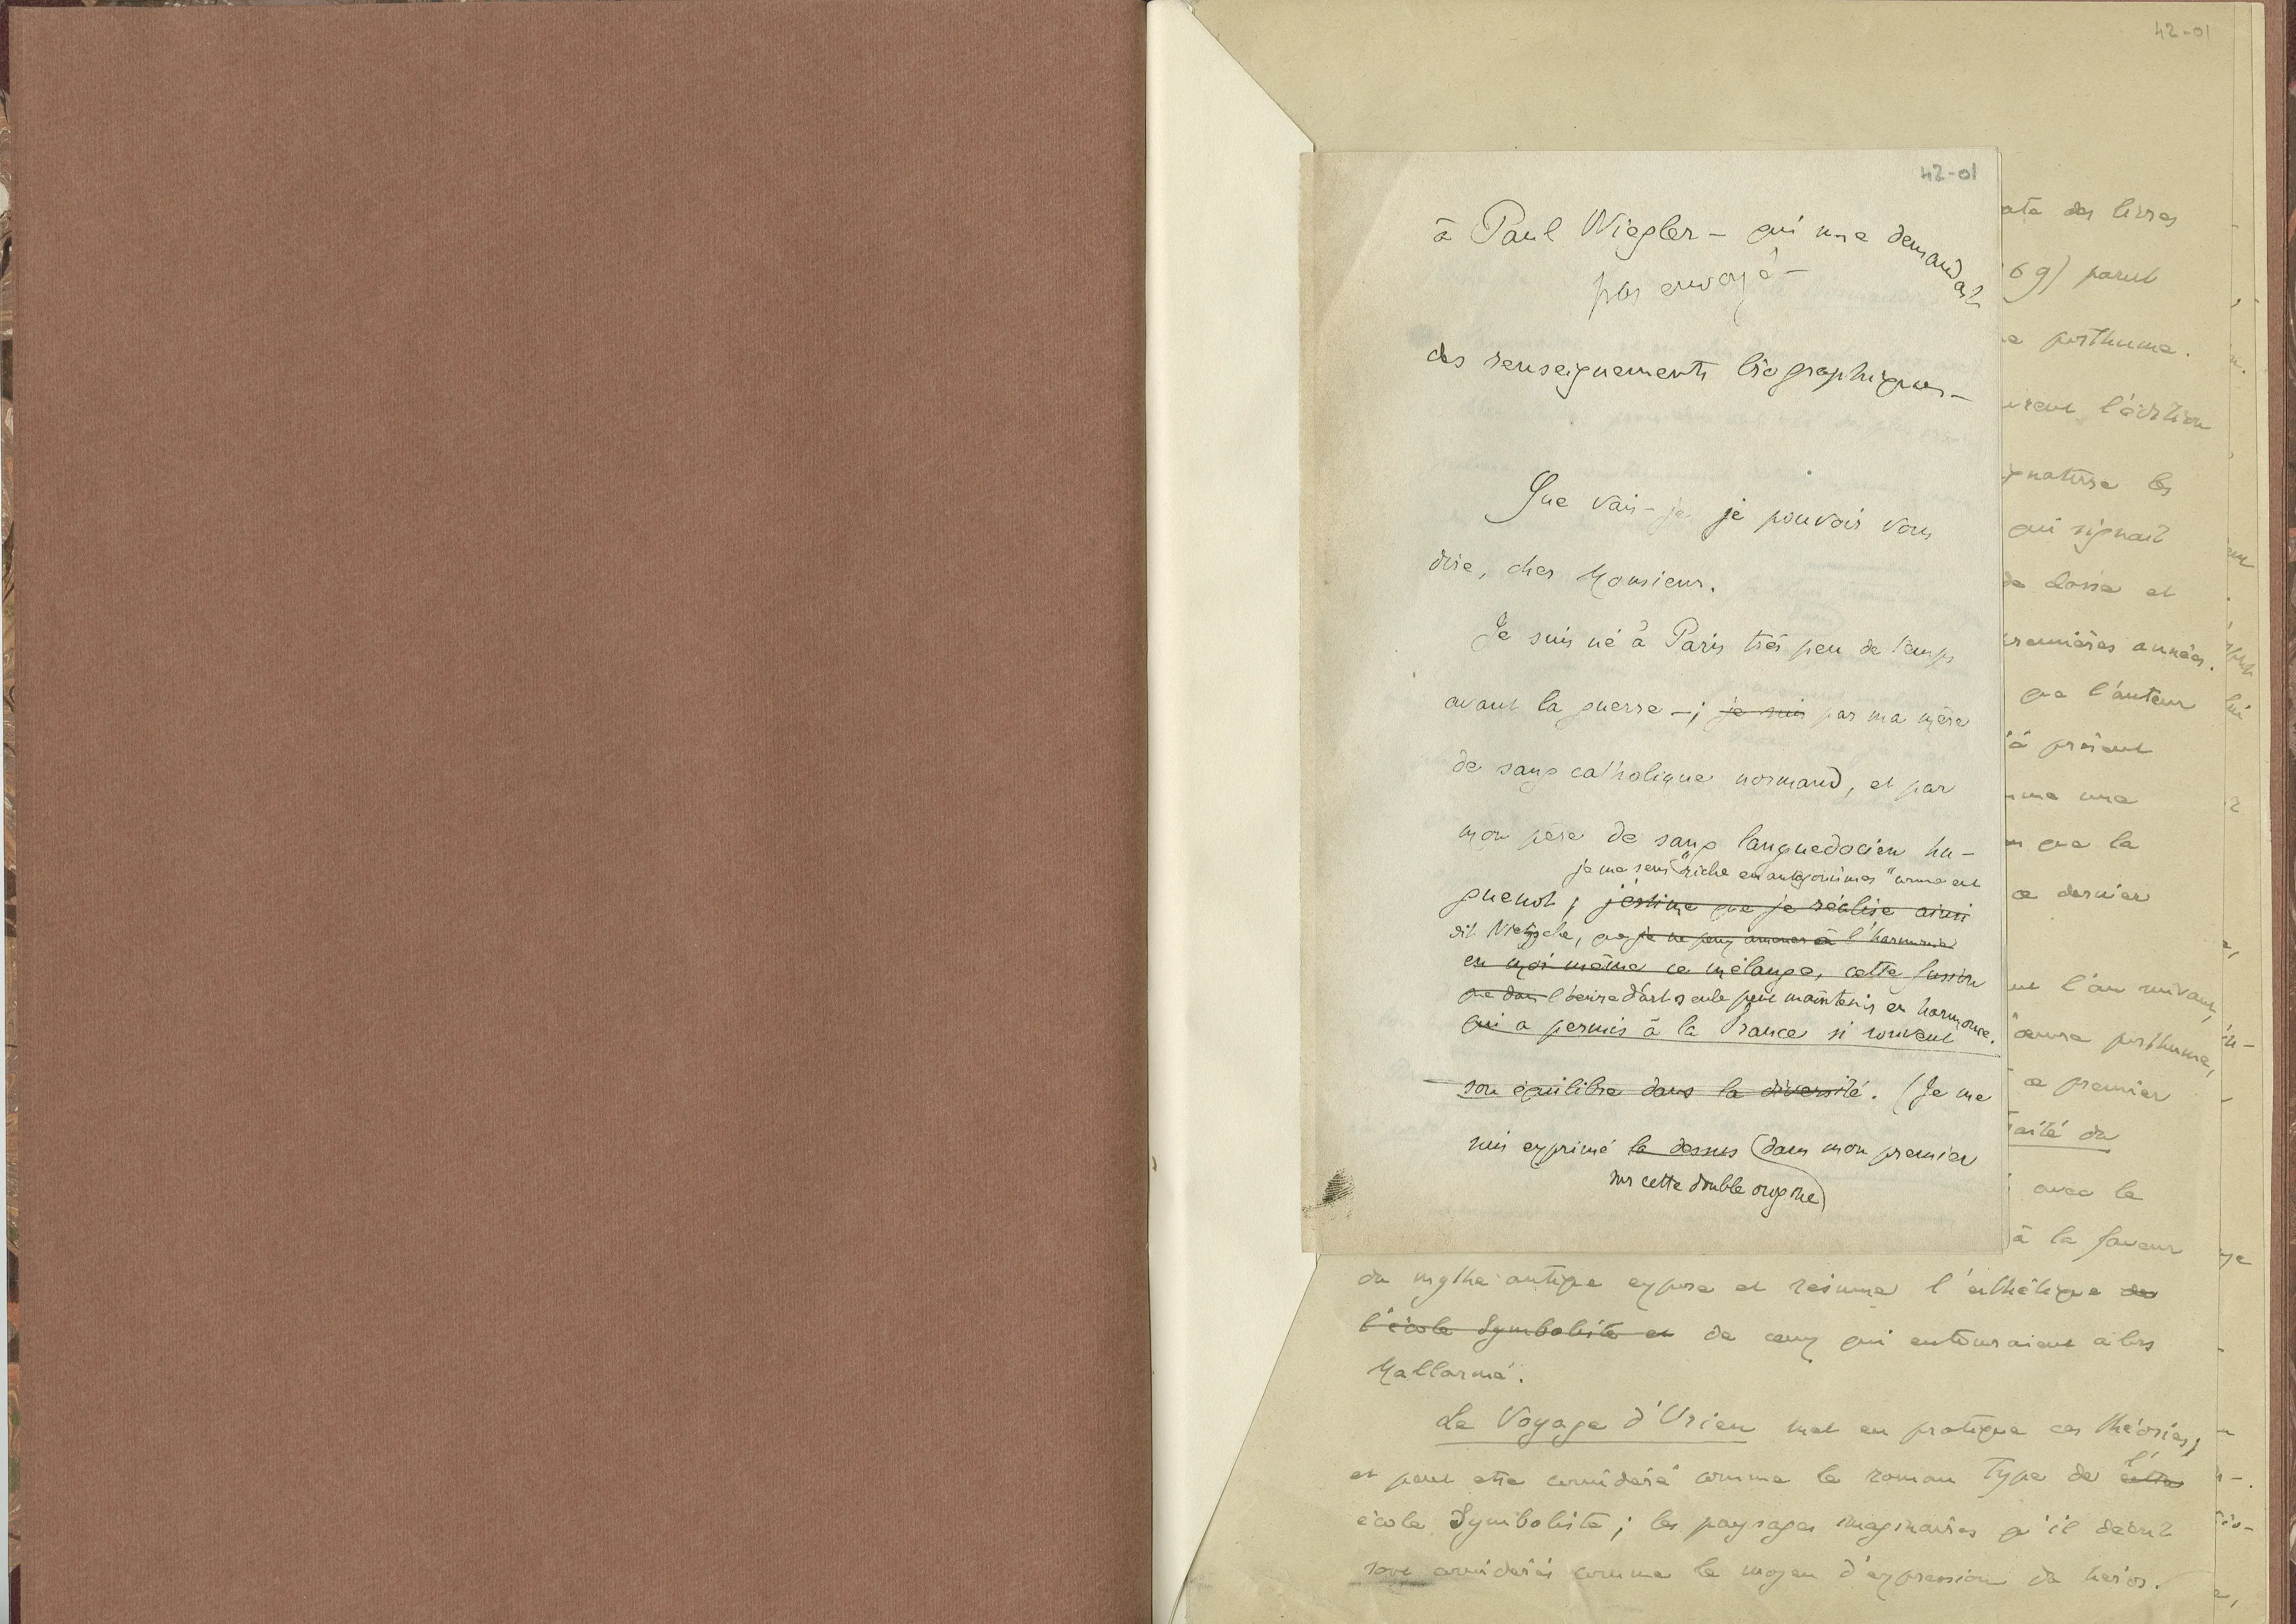 42-01
42-01
à Paul Wiegler — qui me demandait
pas envoyé —
des renseignements biographiques —
Que vais-je je pouvoir vous
dire, cher Monsieur.
Je suis né à Paris très peu de temps
avant la guerre —; je suis par ma mère
de sang catholique normand, et par
mon père de sang languedocien hu-
je me sens "riche en antagonismes" comme eut
guenot; j'estime que je réalise ainsi
dit Nietzsche, que je ne peux amener à l'harmonie
en moi même ce mélange, cette fusion
que dans l'œuvre d'art seule peut maintenir en harmonie.
qui a permis à la France si souvent
son équilibre dans la diversité. (Je me
suis exprimé là dessus (dans mon premier
sur cette double origine)
ate des livres
69) parut
e posthume.
urent l'édition
gnature les
qui signait
de classe et
premières années.
que l'auteur
à présent
me une
que la
ce dernier
l'an suivant,
œuvre posthume,
ce premier
raité du
avec le
à la faveur
du mythe antique expose et résume l'esthétique des
l'école Symboliste et de ceux qui entouraient alors
Mallarmé.
Le Voyage d'Urien met en pratique ces théories,
l'
et peut être considéré comme le roman type de cette
école Symboliste; les paysages imaginaires qu'il décrit
sont considérés comme le moyen d'expression du héros.